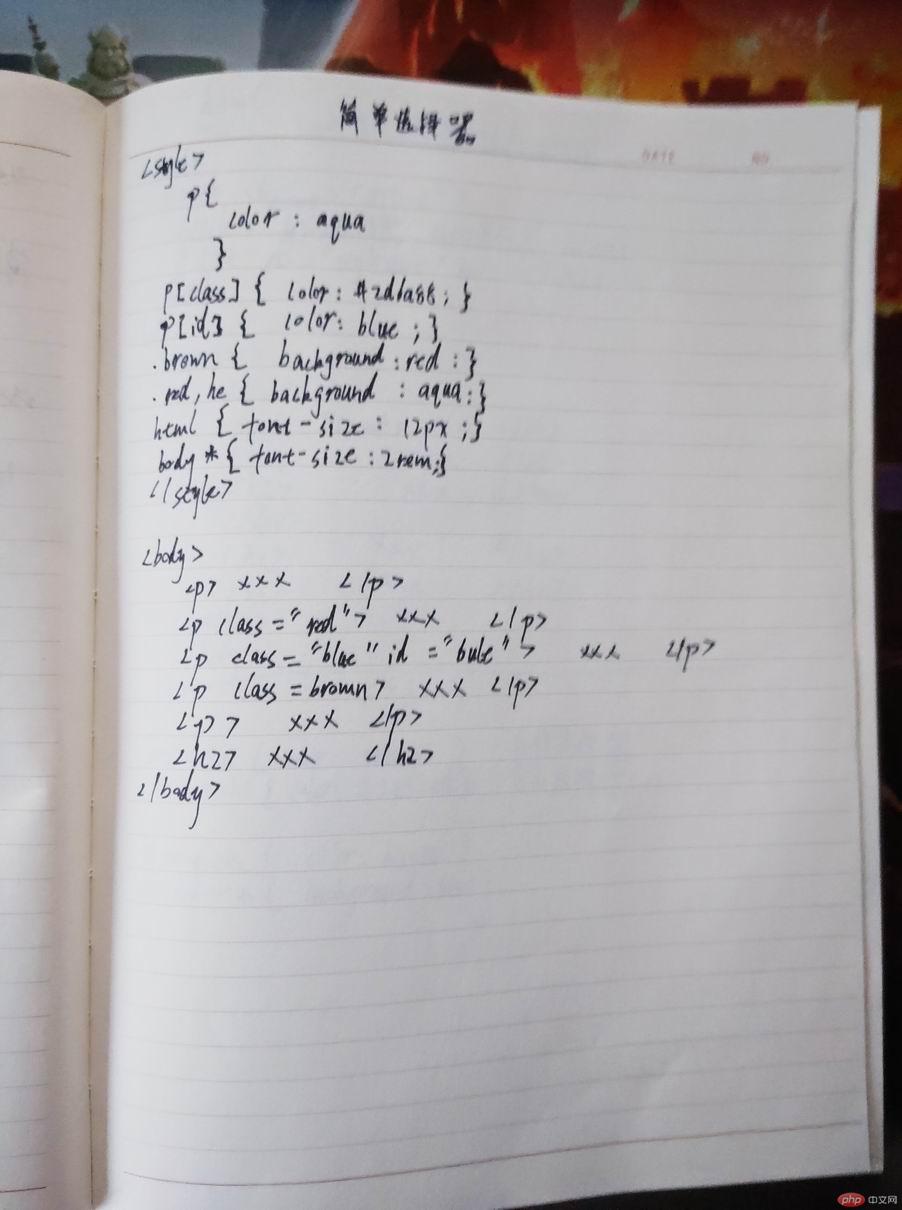 简单选择器
DATE
<style>
p{
color : aqua
}
p[class] { color : #2d6a88 ; }
p[id] { color : blue ; }
.brown { background : red : }
.red, he { background : aqua ; }
html { font-size : 12px ; }
body * { font-size : 2rem ; }
</style>
<body>
<p> xxx </p>
<p class="red"> xxx </p>
<p class="blue" id="bule"> xxx </p>
<p class=brown> xxx </p>
<p> > xxx </p>
<h2> xxx </h2>
</body>
php 中文网